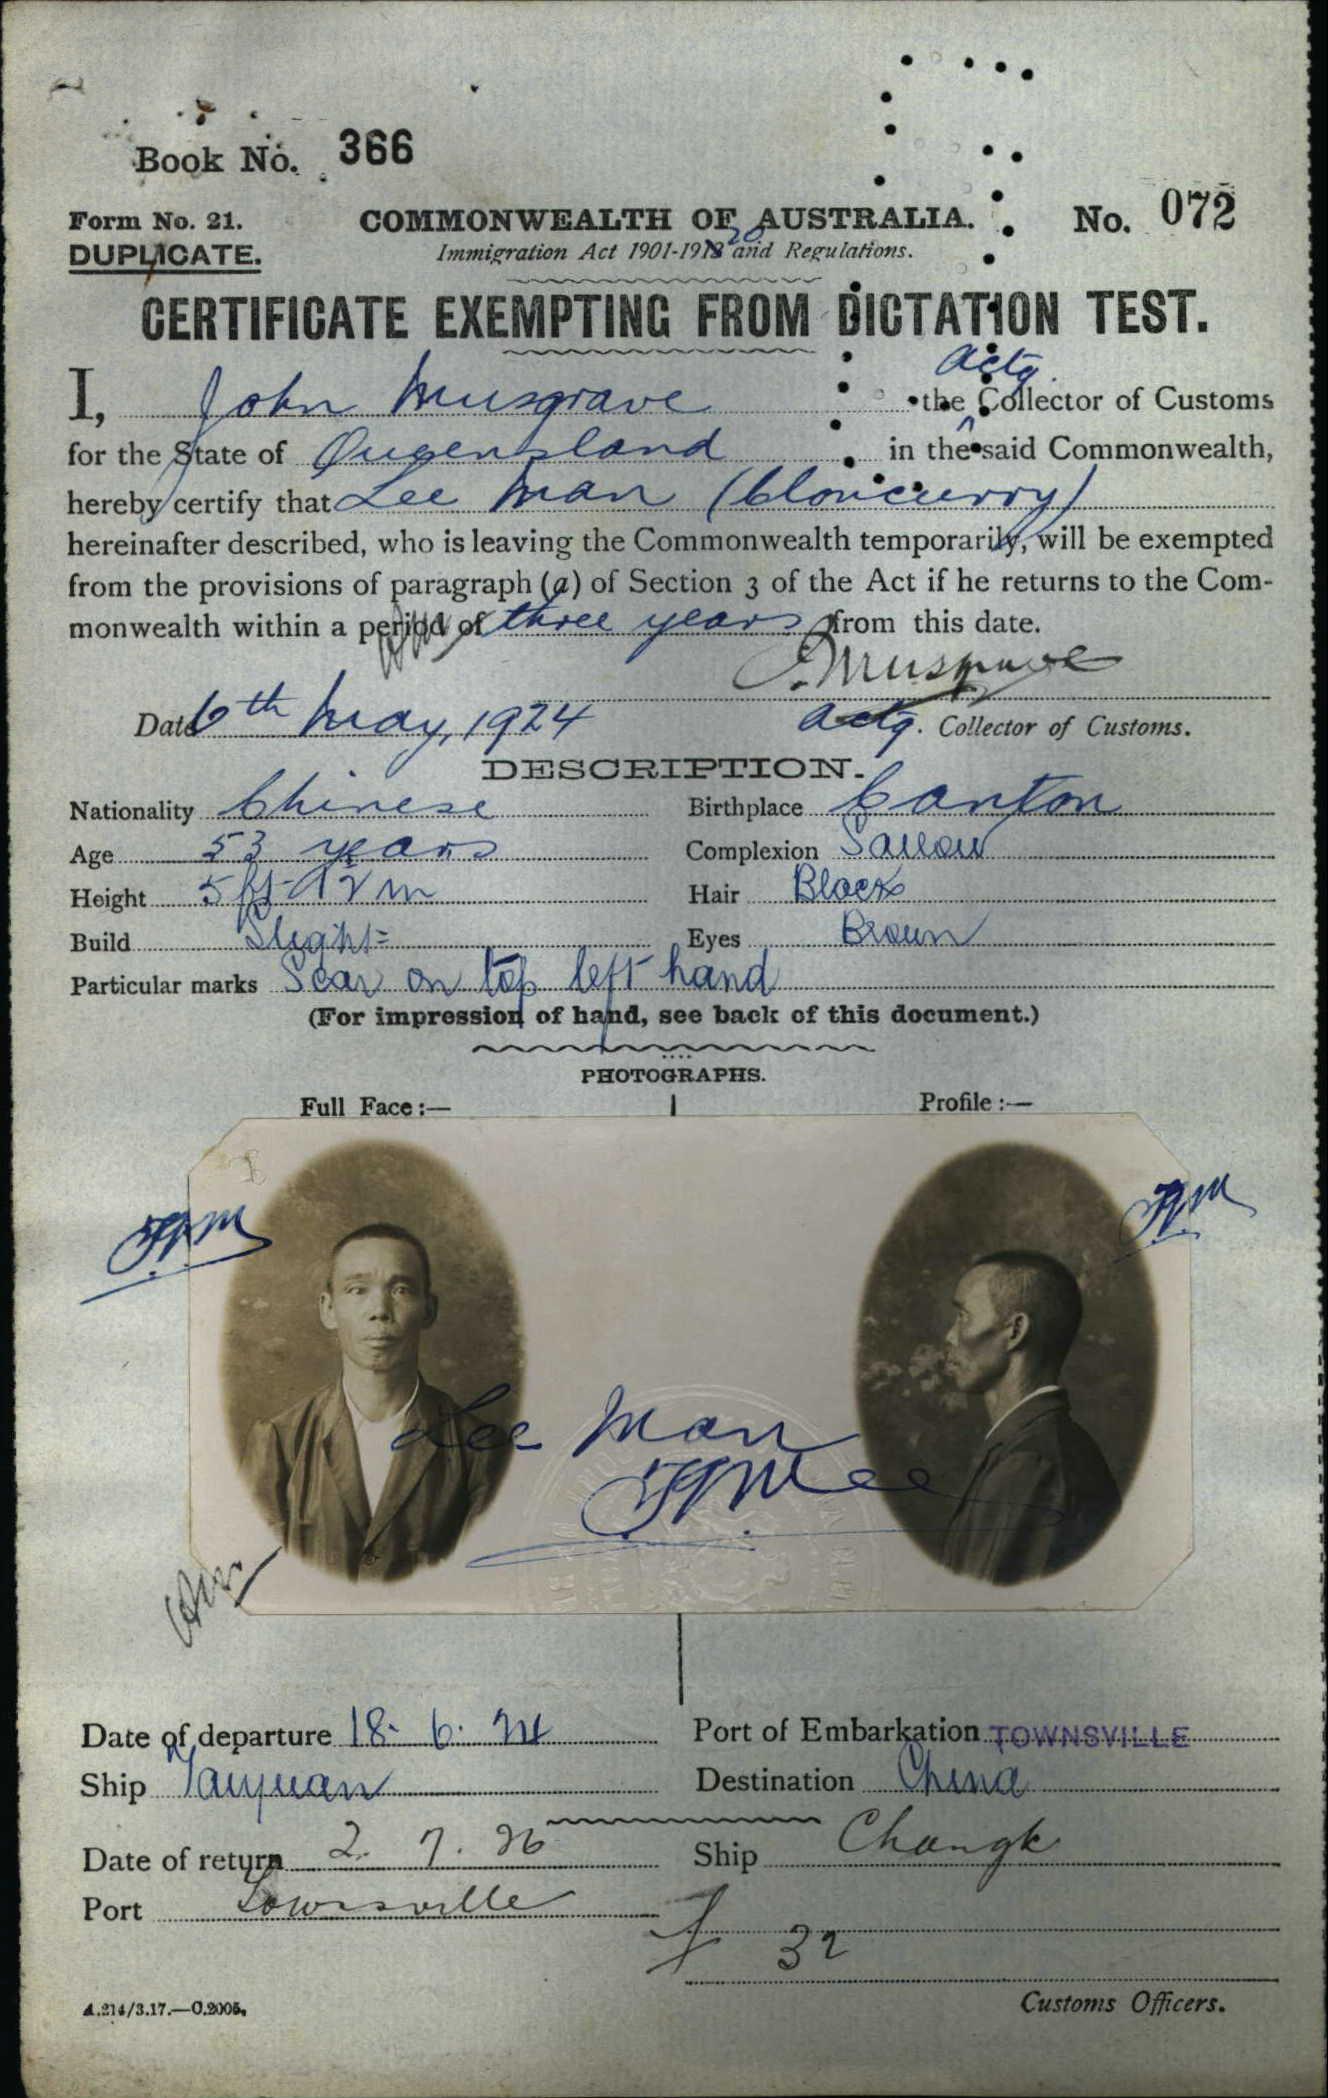 Book No. 366
Form No. 21.
COMMONWEALTH OF AUSTRALIA.
No. 072
DUPLICATE.
Immigration Act 1901-1920 and Regulations.
CERTIFICATE EXEMPTING FROM DICTATION TEST.
I, John Musgrave actg. the Collector of Customs
for the State of Queensland in the said Commonwealth,
hereby certify that Lee Man (Cloncurry)
hereinafter described, who is leaving the Commonwealth temporarily, will be exempted
from the provisions of paragraph (a) of Section 3 of the Act if he returns to the Com-
monwealth within a period of three years from this date.
J. Musgrave
Date 6th May, 1924
actg. Collector of Customs.
DESCRIPTION.
Nationality Chinese Birthplace Canton
Age 53 years Complexion Sallow
Height 5 ft Hair Black
Build Slight Eyes Brown
Particular marks Scar on top left hand
(For impression of hand, see back of this document.)
PHOTOGRAPHS.
Full Face:— Profile:—
Lee Man
Date of departure 18. 6. 24 Port of Embarkation TOWNSVILLE
Ship Taiyuan Destination China
Date of return 2. 7. 26 Ship Changte
Port Townsville
32
A.214/3.17.—C.2005.
Customs Officers.